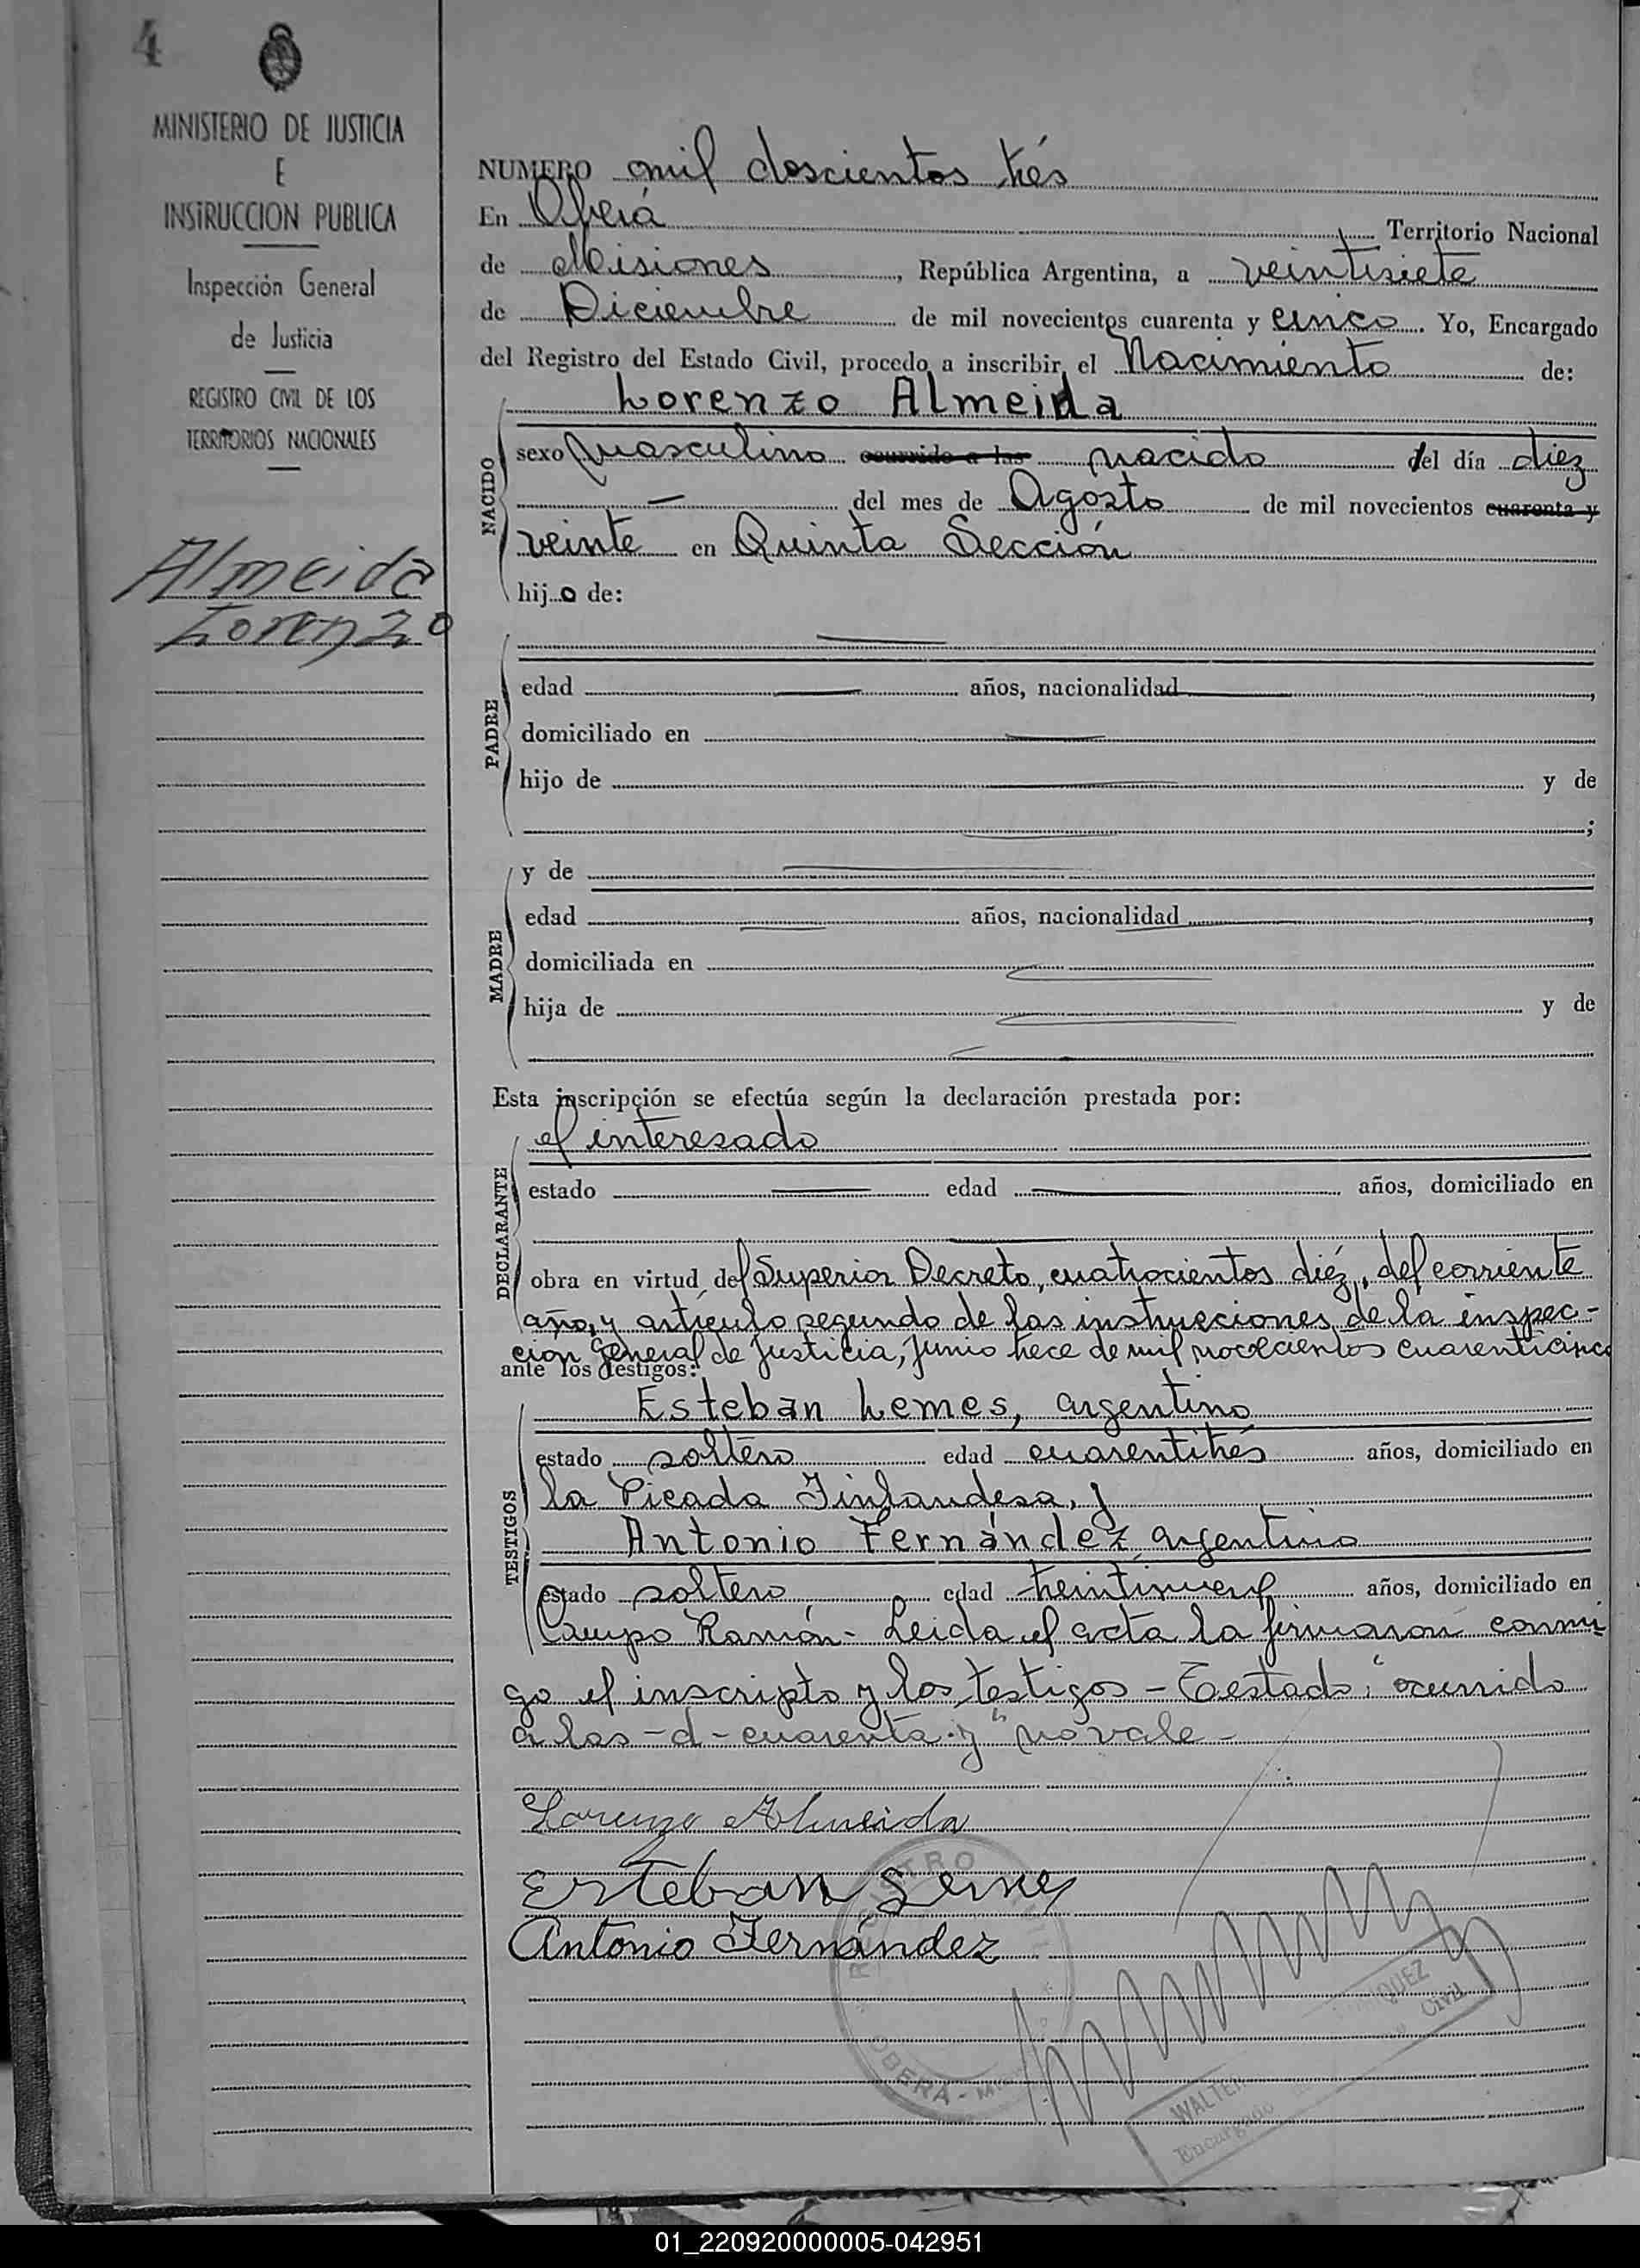 4
MINISTERIO DE JUSTICIA
E
INSTRUCCION PUBLICA
Inspección General
de Justicia
REGISTRO CIVIL DE LOS
TERRITORIOS NACIONALES
Almeida
Lorenzo
NUMERO mil doscientos trés
En Oberá Territorio Nacional
de Misiones, República Argentina, a veintisiete
de Diciembre de mil novecientos cuarenta y cinco. Yo, Encargado
del Registro del Estado Civil, procedo a inscribir el Nacimiento de:
Lorenzo Almeida
NACIDO
sexo masculino ocurrido a las nacido del día diez
del mes de Agosto de mil novecientos cuarenta y
veinte en Quinta Sección
hijo de:
PADRE
edad años, nacionalidad,
domiciliado en
hijo de y de
;
MADRE
y de
edad años, nacionalidad,
domiciliada en
hija de y de
Esta inscripción se efectúa según la declaración prestada por:
DECLARANTE
el interesado
estado edad años, domiciliado en
obra en virtud del Superior Decreto, cuatrocientos diéz, del corriente
año, y artículo segundo de las instrucciones de la inspec-
cion General de Justicia, junio trece de mil novecientos cuarenticinco
ante los testigos:
TESTIGOS
Esteban Lemes, argentino
estado soltero edad cuarentitrés años, domiciliado en
la Picada Finlandesa, y
Antonio Fernández, argentino
estado soltero edad treintinueve años, domiciliado en
Campo Ramón - Leida el acta la firmaron conmi
go el inscripto y los testigos - Testado: "ocurrido
a las - d - cuarenta y" no vale -
Lorenzo Almeida
Esteban Lemes
Antonio Fernández
REGISTRO CIVIL
OBERA - MISIONES
WALTER
Encargado Civil
01_220920000005-042951